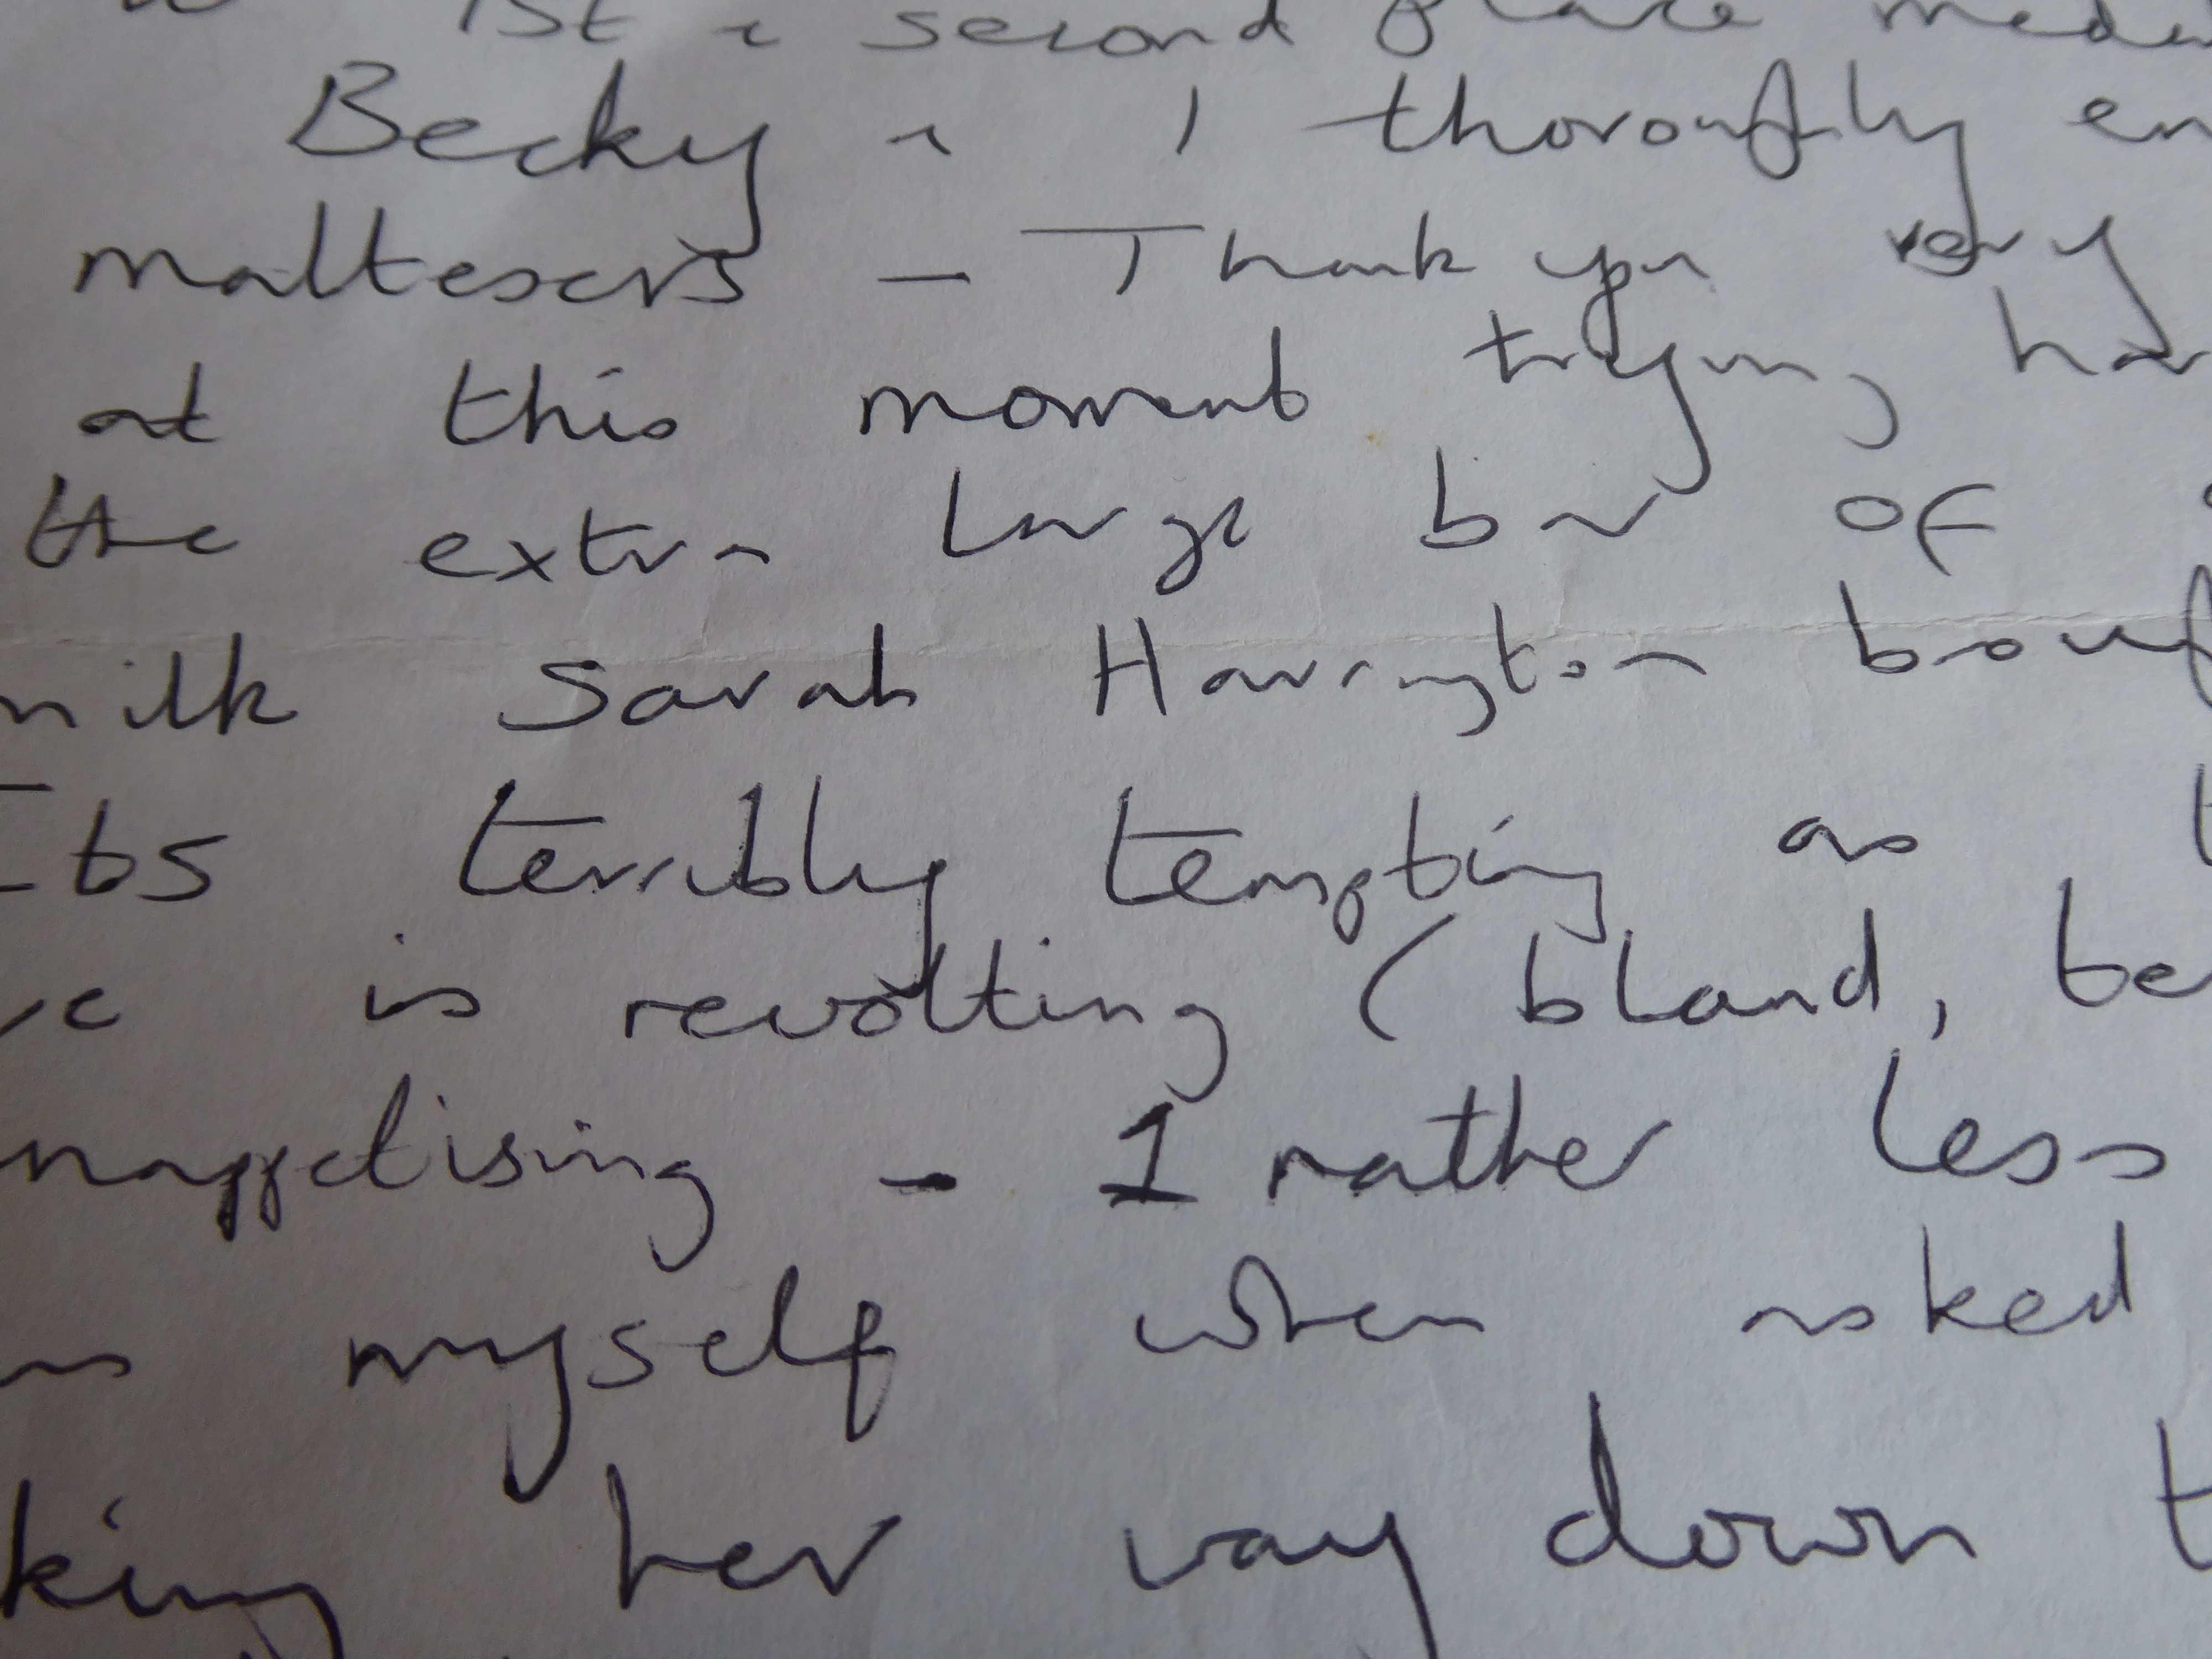 1st & second place meda
Becky & I thoroughly en
maltesers - Thank you very
at this moment trying har
the extra large bar of
milk Sarah Harrington boug
Its terribly tempting as t
is revolting (bland, be
nappetising - I rather less
myself when asked
king her way down t